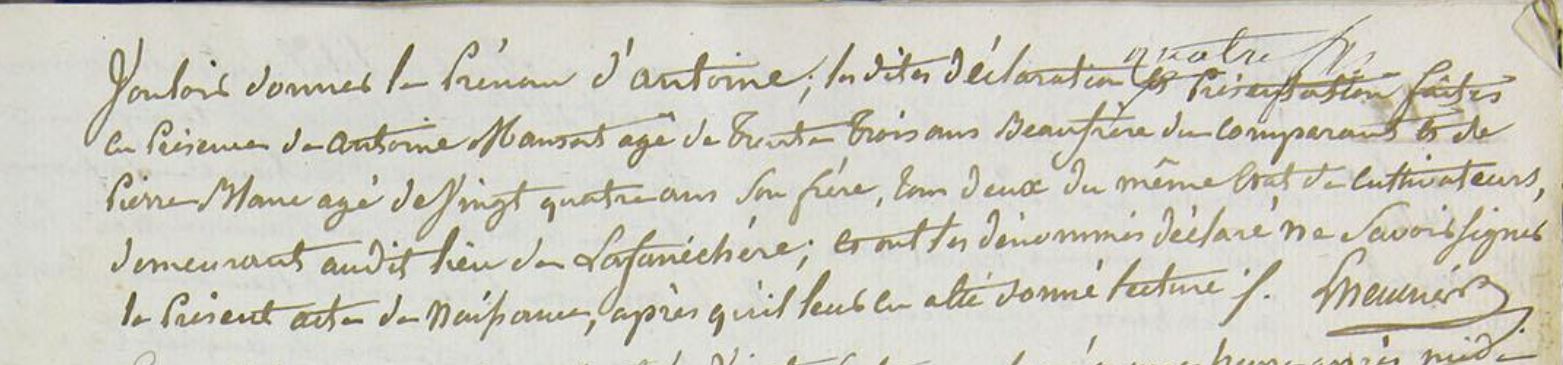 Vouloir donner le Prénom d'antoine; les dites déclaration et Présentation faites
en Présence de antoine Mansat agé de trente trois ans Beaufrère du comparant et de
Pierre Blanc agé de Vingt quatre ans son frère, tous deux du même Etat de cultivateurs,
demeurants audit lieu de Lafanéchère; et ont les dénommés déclaré ne Savoir signer
le Présent acte de Naissance, après qu'il leur en a été donné lecture /. Meunier